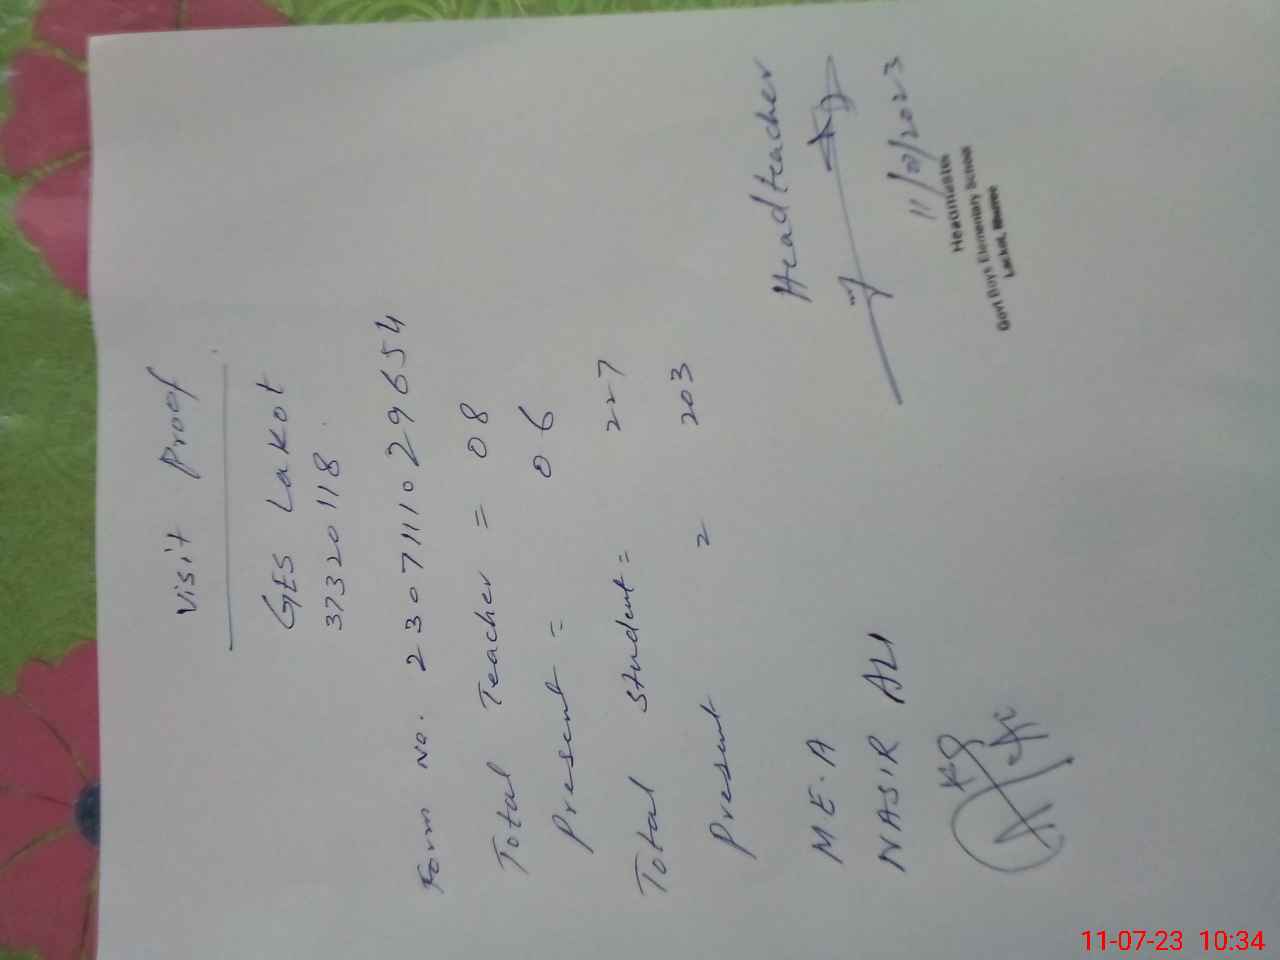 Visit Proof
GES Lakot
37320118
Form No. 23071110 29654
Total Teacher = 08
Present = 06
Total Student = 227
Present = 203
M E. A
NASIR ALI
Headteacher
11/07/2023
Headmaster
Govt Boys Elementary School
Lakot, Murree
11-07-23 10:34